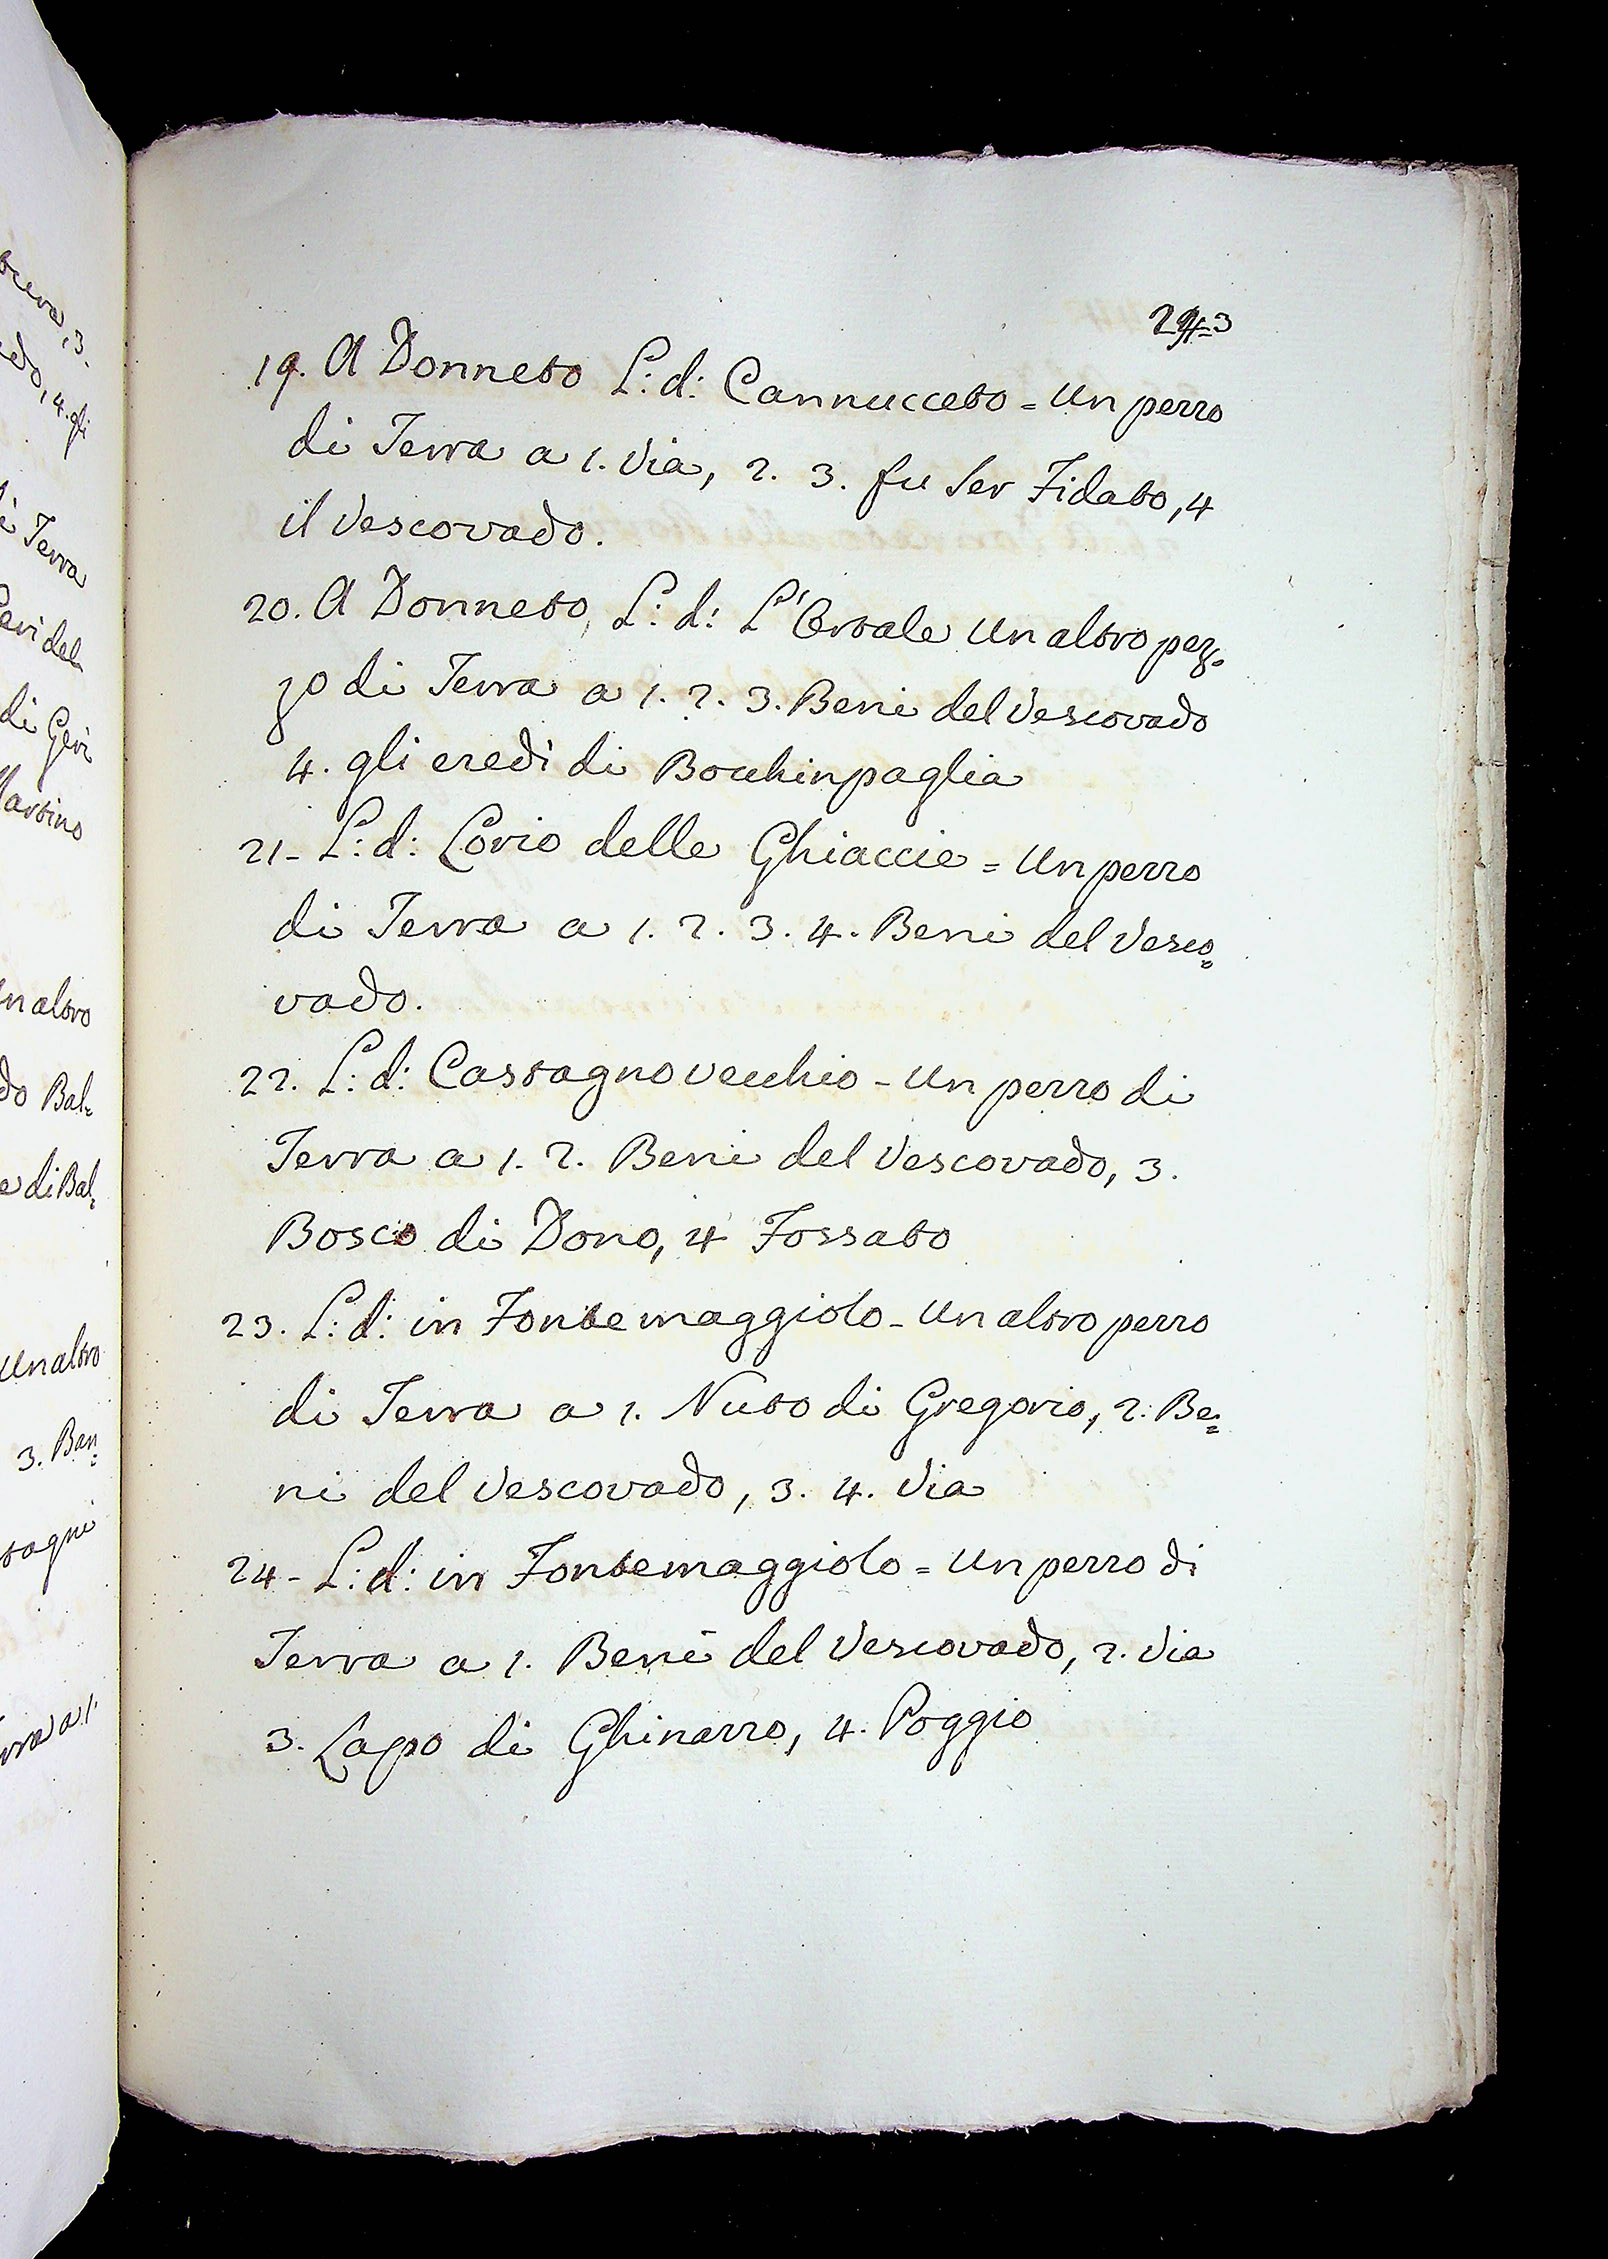 243
19. A Donneto L: d: Cannucceto = Un pezzo
di Terra a 1. Via, 2. 3. fu Ser Fidato, 4
il Vescovado.
20. A Donneto, L: d: L'Ortale Un altro pez-
zo di Terra a 1. 2. 3. Beni del Vescovado
4. gli eredi di Bocchinpaglia
21- L: d: Lovio delle Ghiaccie = Un pezzo
di Terra a 1. 2. 3. 4. Beni del Vesco=
vado.
22. L: d: Castagno vecchio - Un pezzo di
Terra a 1. 2. Beni del Vescovado, 3.
Bosco di Dono, 4 Fossato
23. L: d: in Fontemaggiolo - Un altro pezzo
di Terra a 1. Nuto di Gregorio, 2. Be=
ni del Vescovado, 3. 4. Via
24- L: d: in Fontemaggiolo = Un pezzo di
Terra a 1. Beni del Vescovado, 2. Via
3. Lapo di Ghinazzo, 4. Poggio